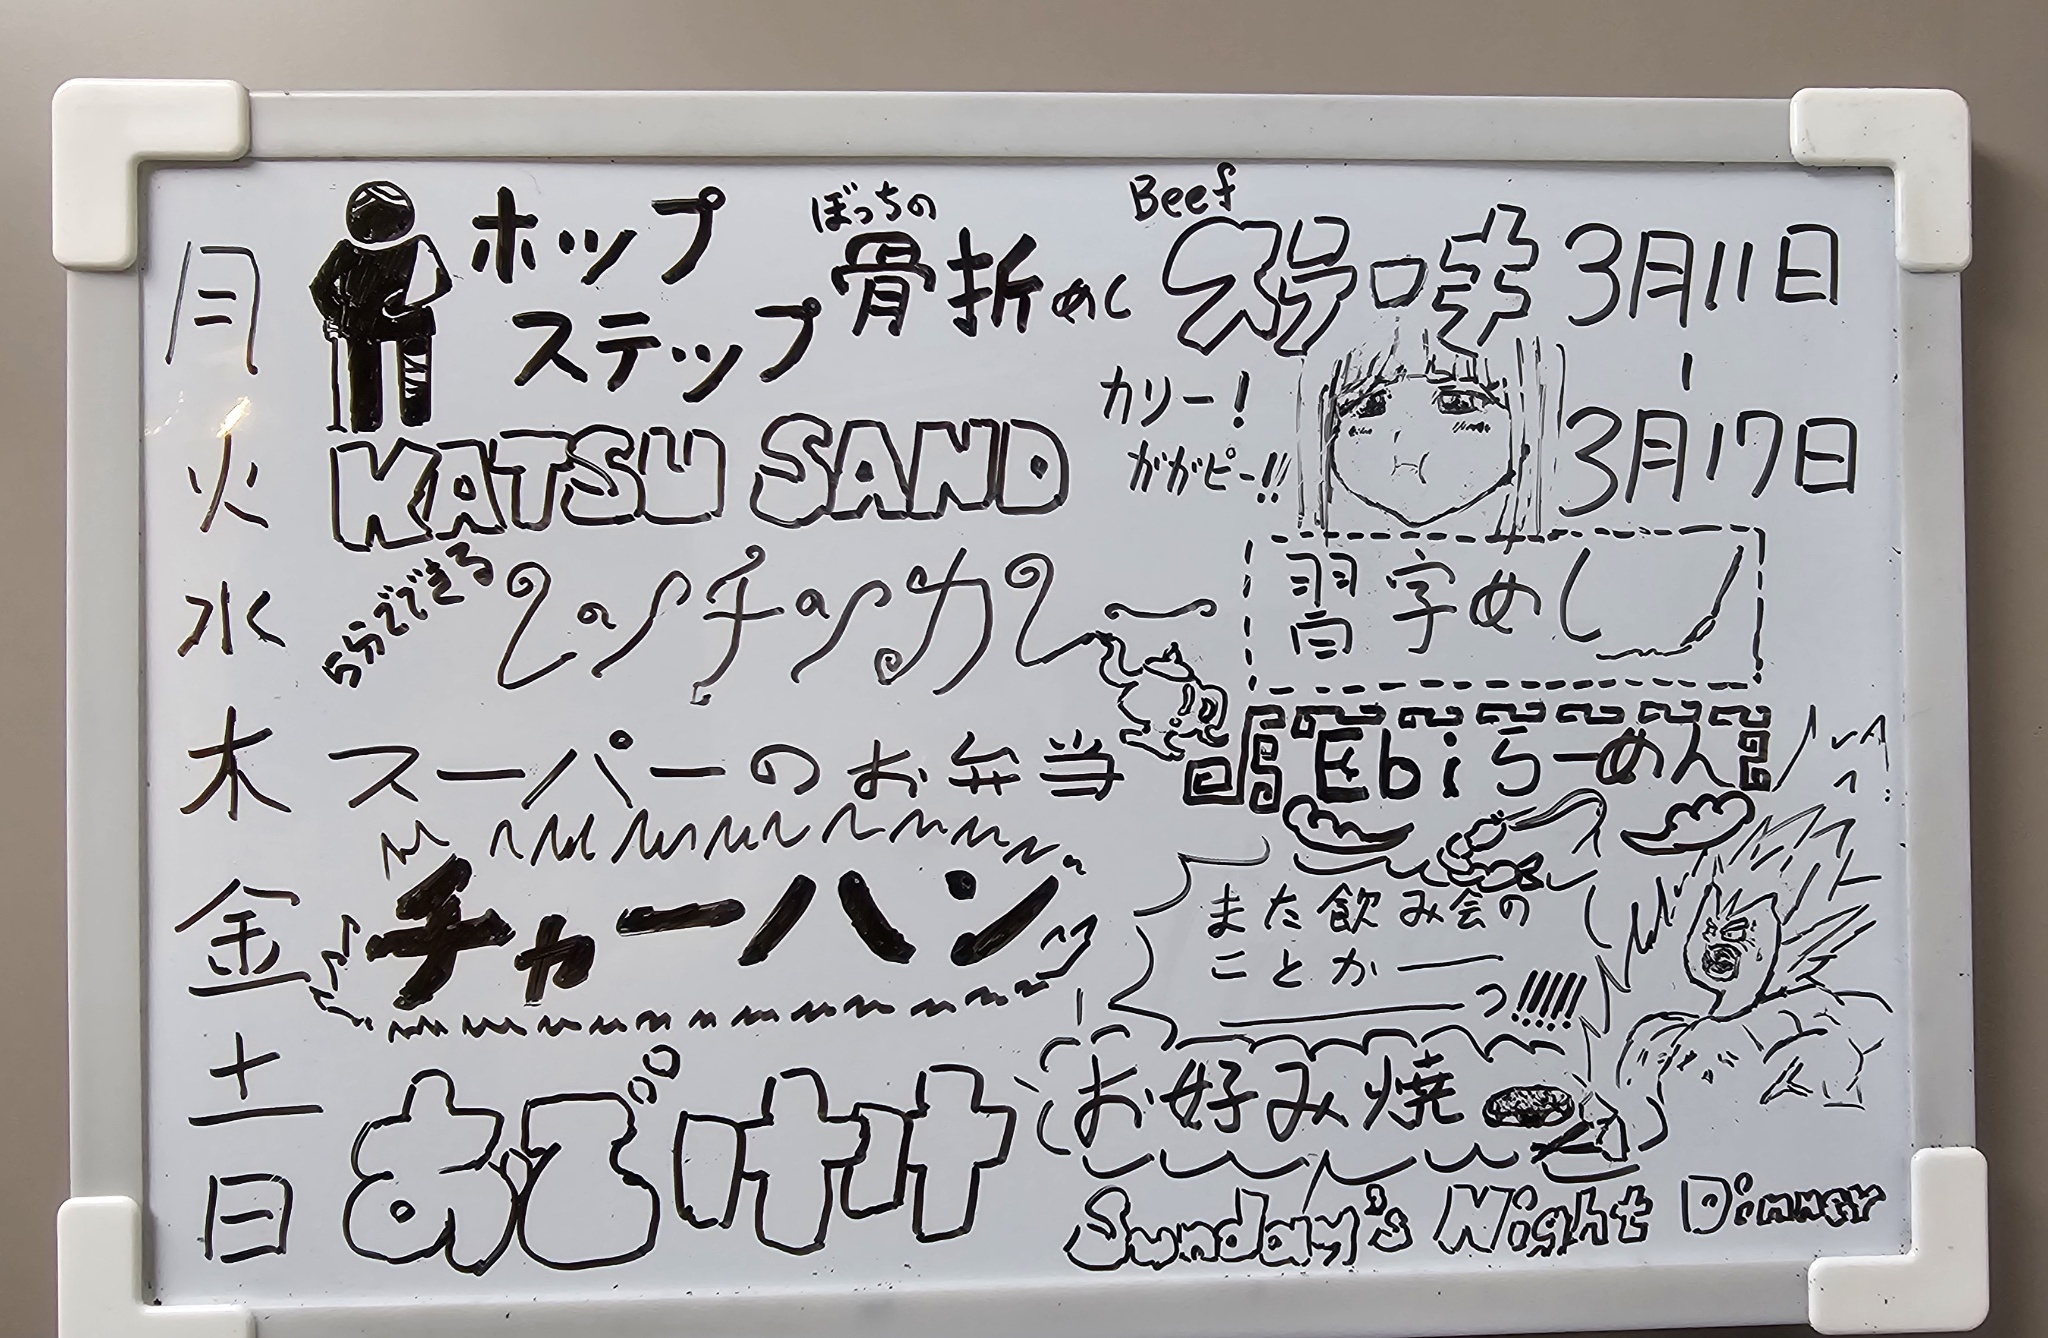 月
ホップ
ステップ
ぼっちの
骨折めし
Beef
3月11日
-
3月17日
火
KATSU SAND
カリー!
ガガピー!!
水
5分でできる
レンチンカレー
習字めし
木
スーパーのお弁当
Ebiらーめん
金
チャーハン
また飲み会の
ことかー
ーっ!!!!!
土
お好み焼
日
おでけけ
Sunday's Night Dinner